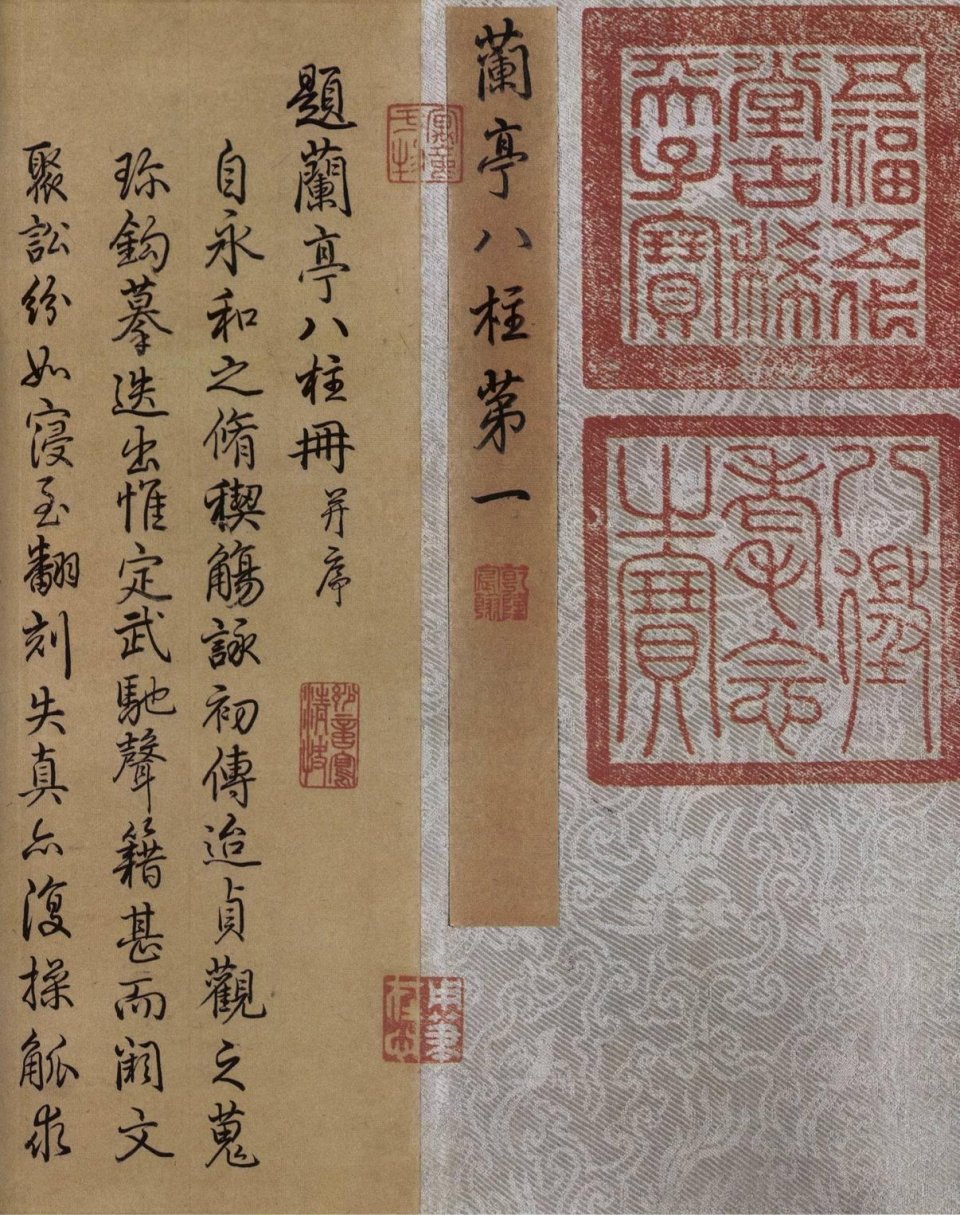 五福五代
堂古稀
天子寶
八徵
耄念
之寶
蘭亭八柱苐一
乾隆
宸翰
題蘭亭八柱冊 并序
自永和之脩稧觴詠初傳迨貞觀之蒐
珎鈎摹迭出惟定武馳聲籍甚而闕文
聚訟紛如寖至翻刻失真亦復操觚